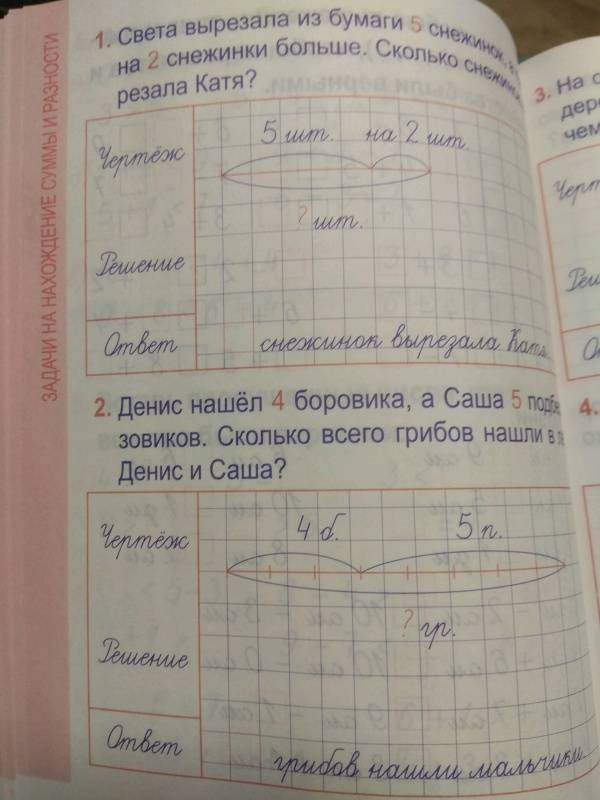 ЗАДАЧИ НА НАХОЖДЕНИЕ СУММЫ И РАЗНОСТИ
1. Света вырезала из бумаги 5 снежинок,
на 2 снежинки больше. Сколько
резала Катя?
Чертёж
5 шт. на 2 шт.
? шт.
Решение
Ответ
снежинок вырезала Катя.
2. Денис нашёл 4 боровика, а Саша 5 подбе
зовиков. Сколько всего грибов нашли в
Денис и Саша?
Чертёж
4 б. 5 п.
? гр.
Решение
Ответ
грибов нашли мальчики.
3. На
дер
чем
Черт
Реш
О
4.